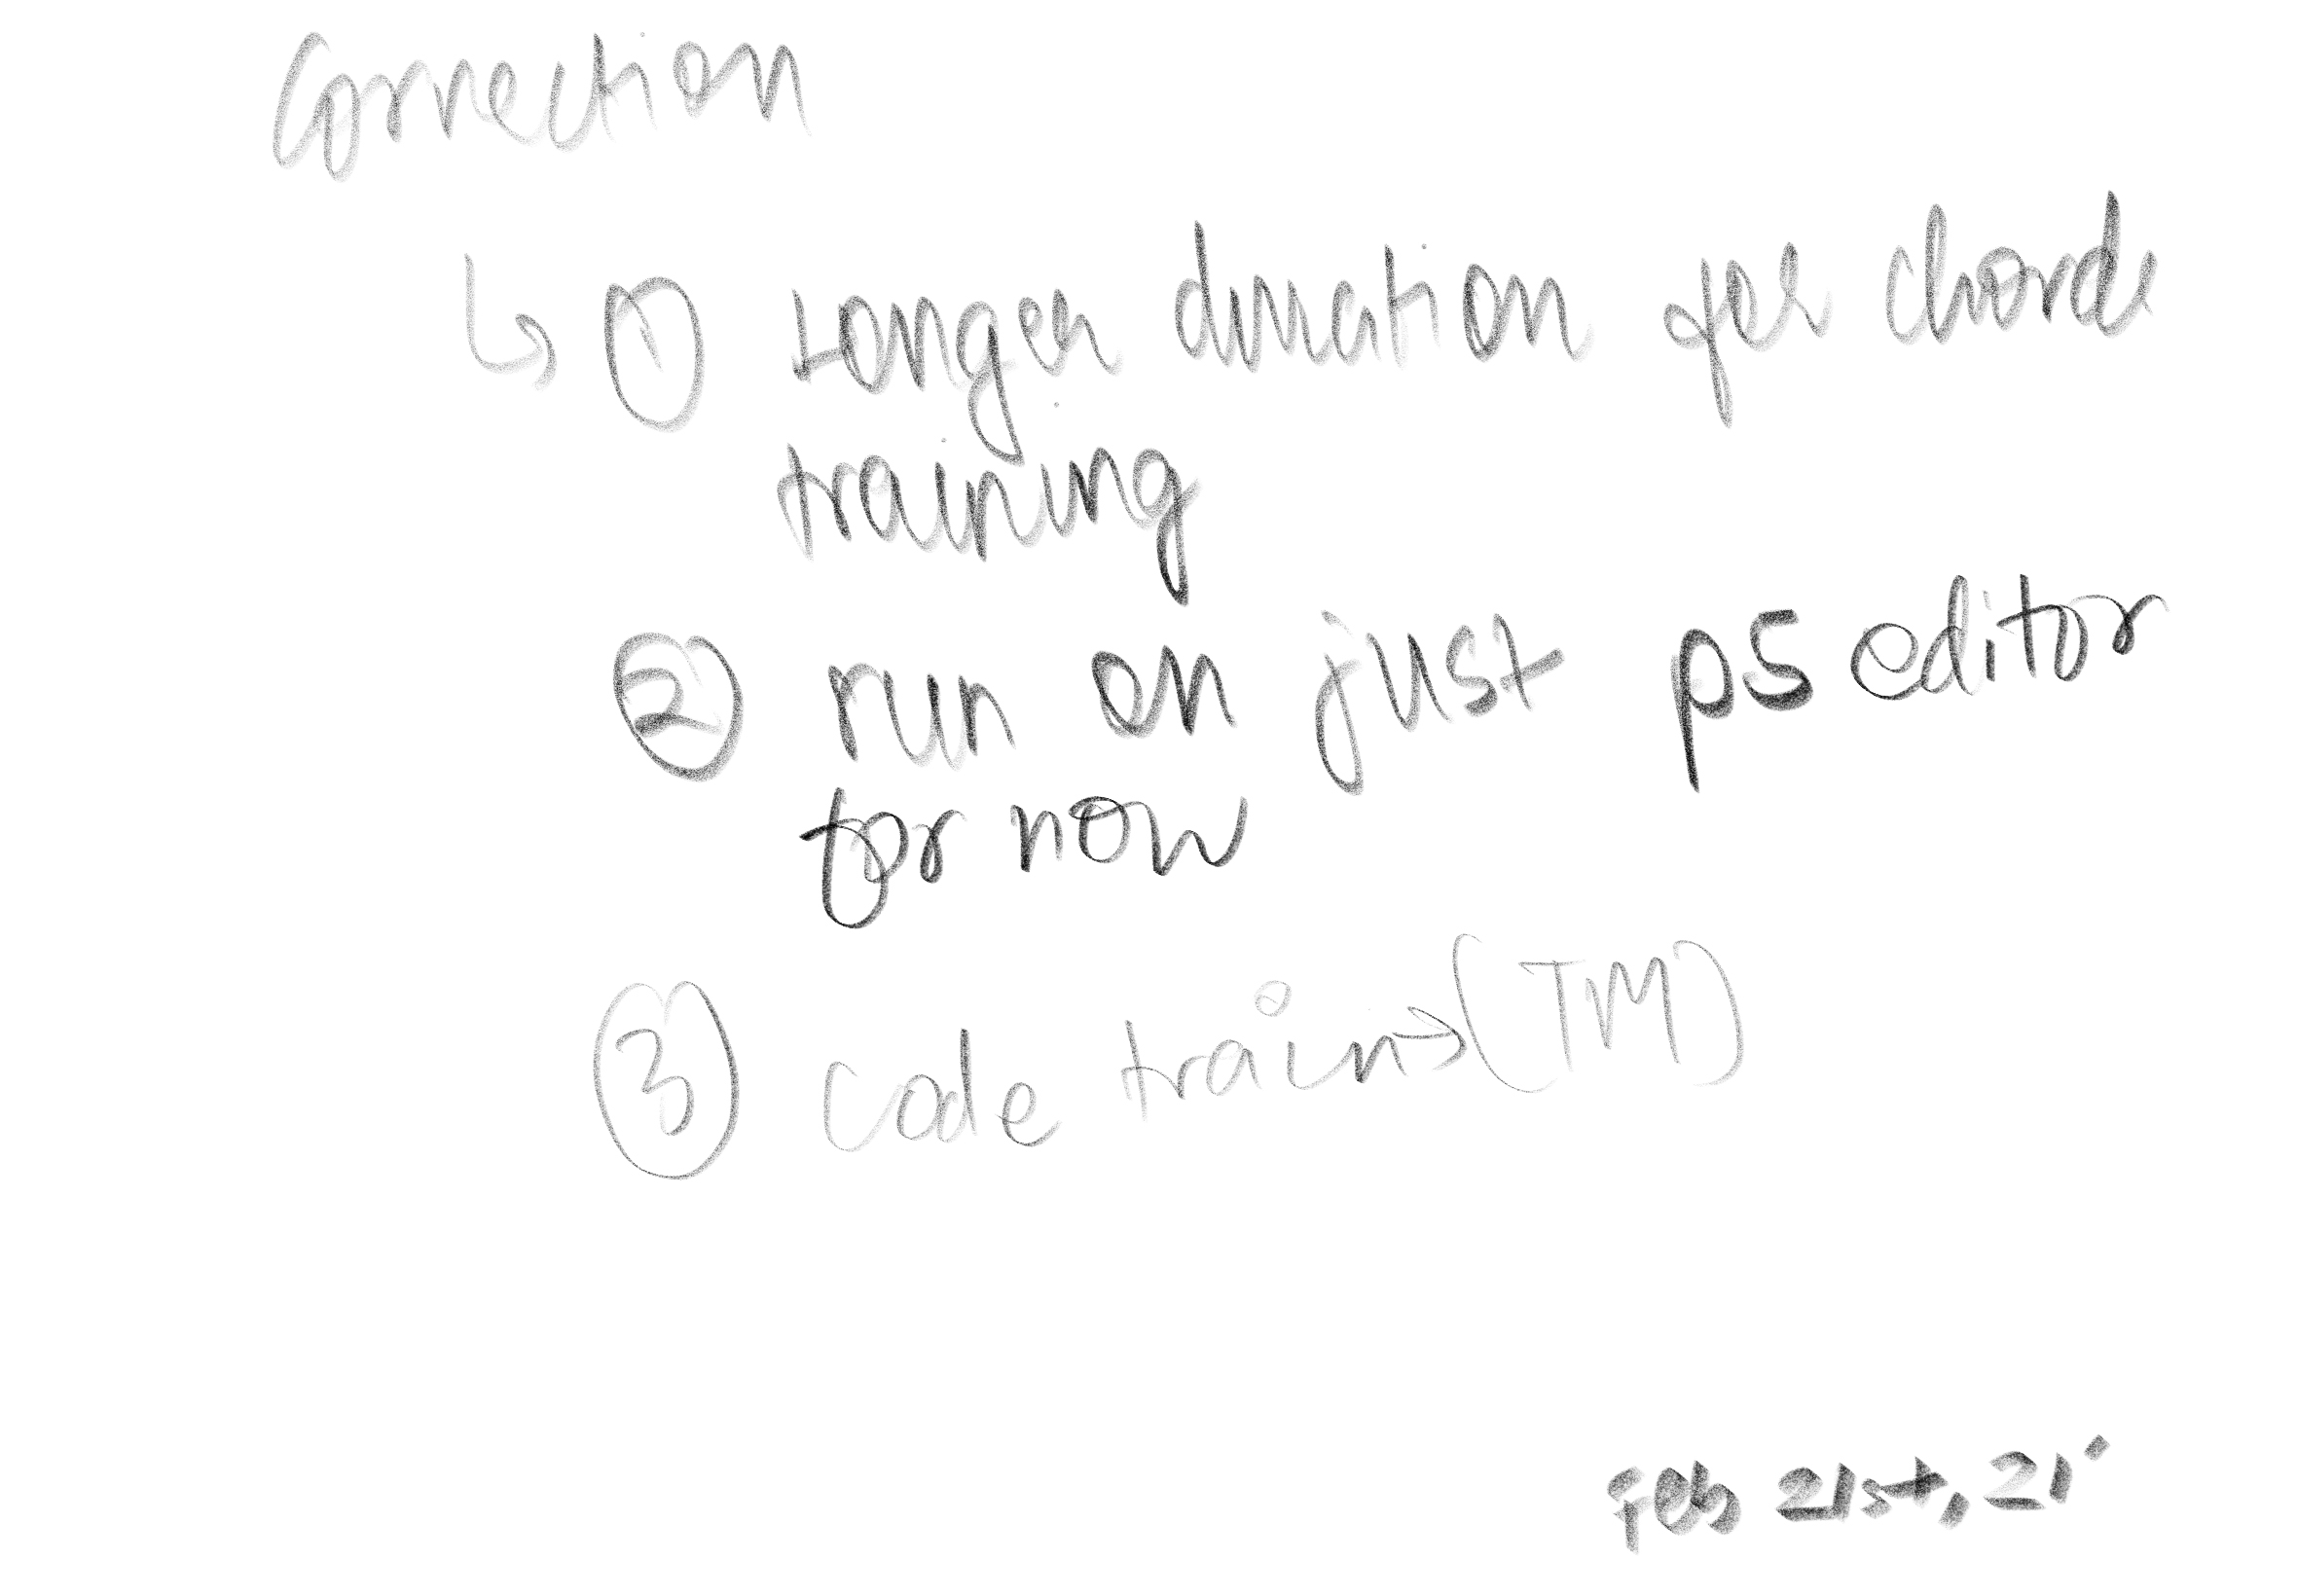 Correction
↳ ① Longer duration for chords
training
② run on just p5 editor
for now
③ code train → (TM)
Feb 21st, 21'